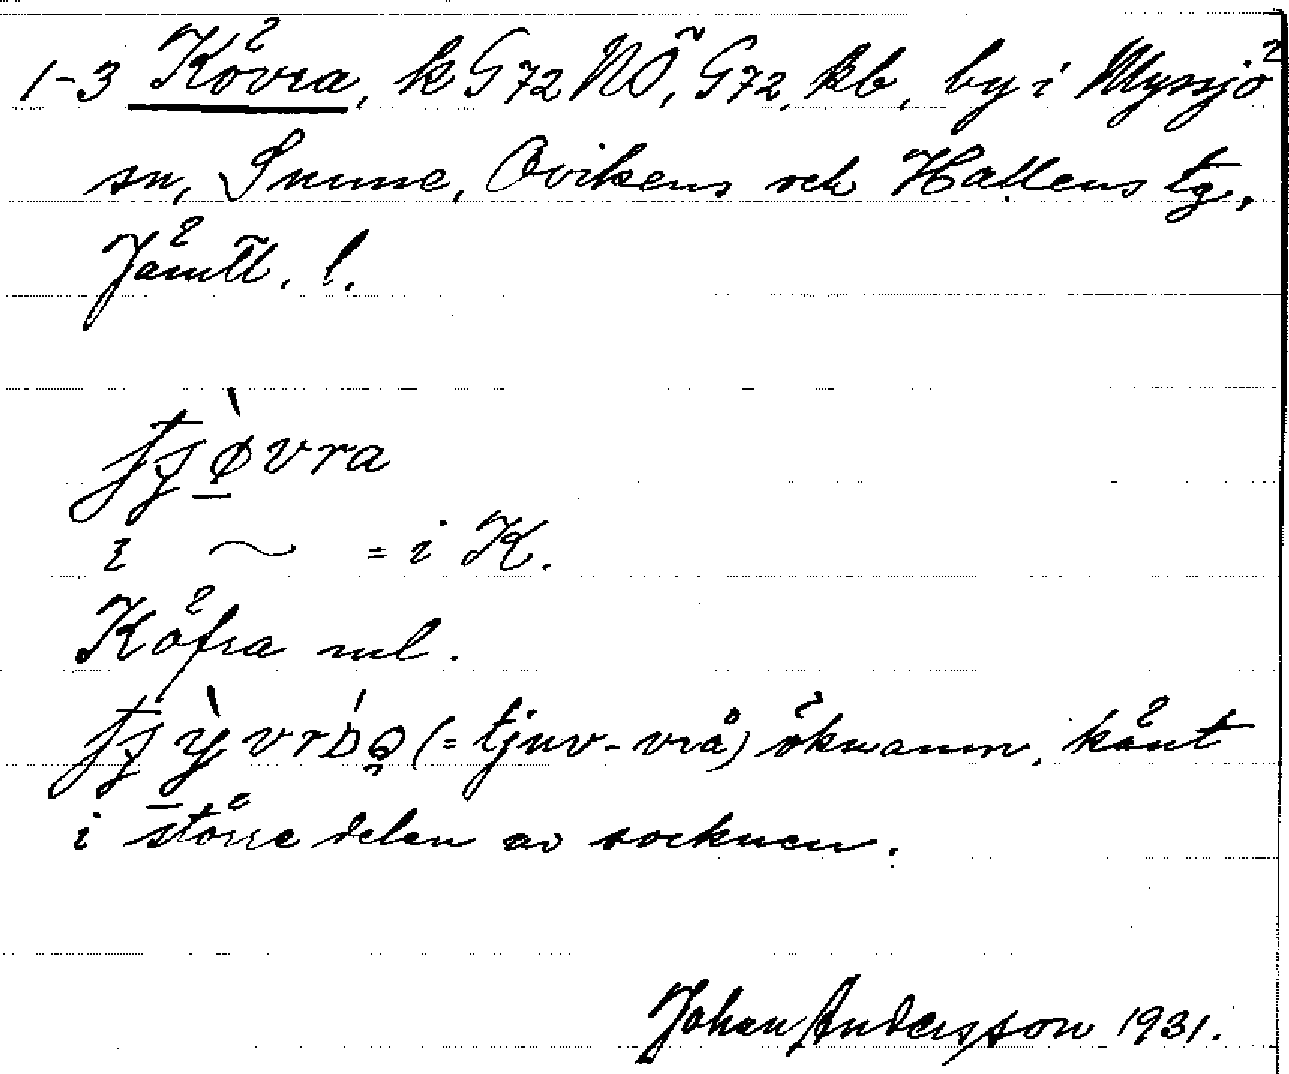 1-3 Kövra, k G72 NÖ, G72, kb, by i Myssjö
sn, Sunne, Ovikens och Hallens tg,
Jämtl. l.
fjø̀vra
i ~ = i K.
Köfra ml.
(= tjuv-vrå) öknamn, känt
i större delen av socknen.
Johan Andersson 1931.